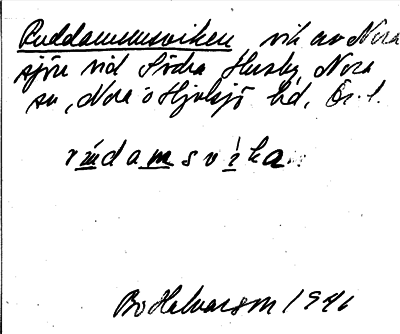 Ruddammsviken vik av Nora
sjön vid Södra Husby, Nora
sn, Nora o Hjulsjö hd, Ör. l.
rudamsvika
Bo Halvarson 1946